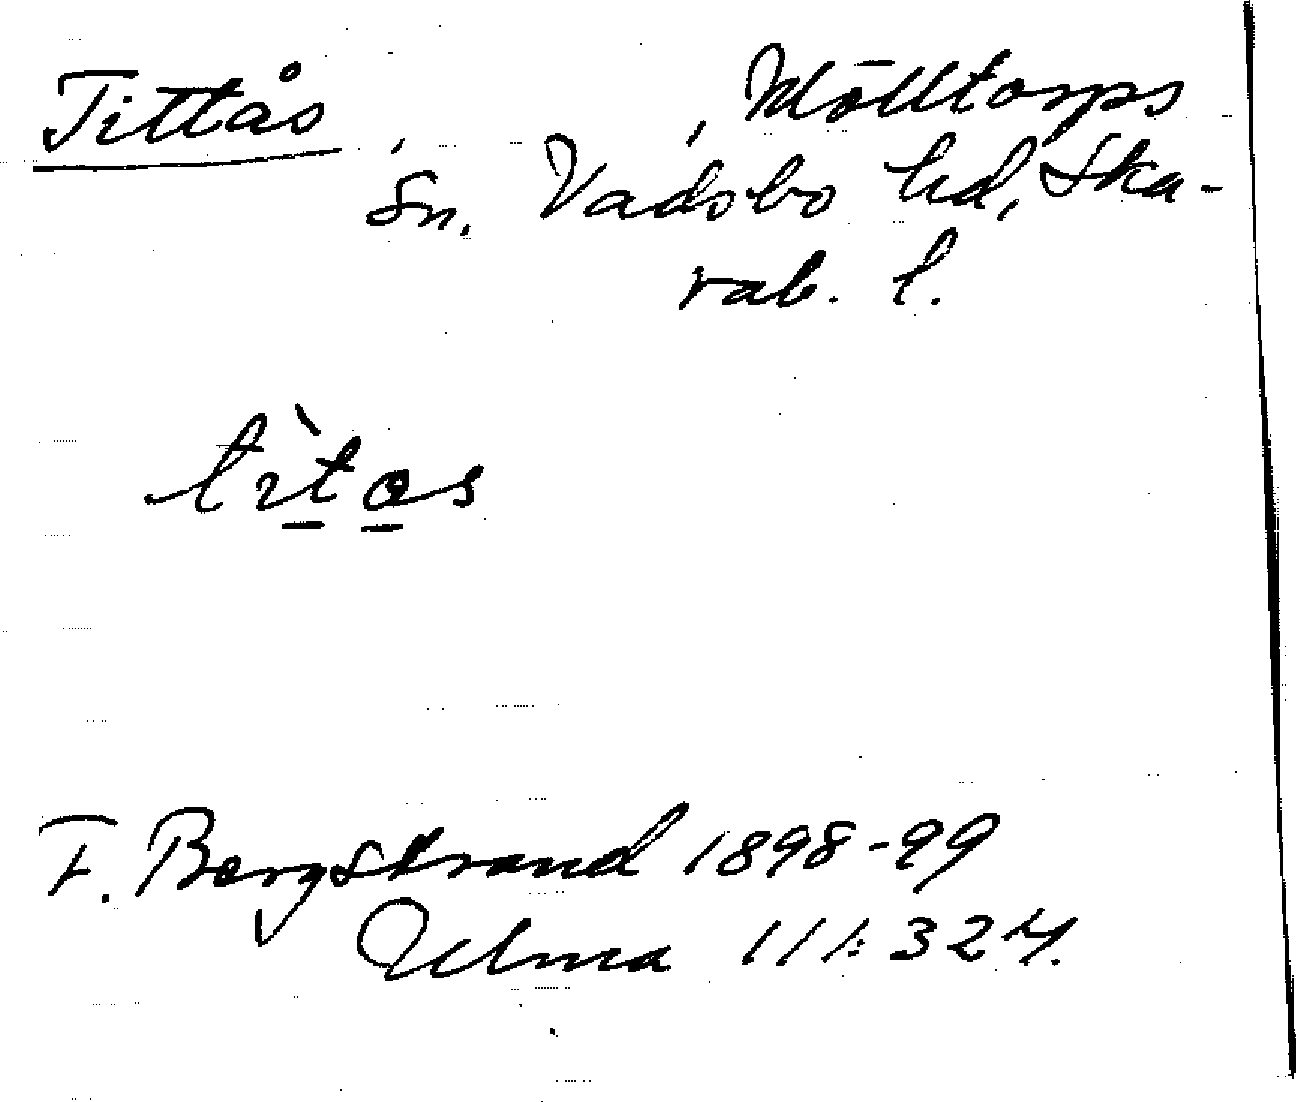 Tittås, , Mölltorps
sn. Vadsbo hd, Ska-
rab. l.
tı̀tas
F. Bergstrand 1898-99
Ulma 111:324.